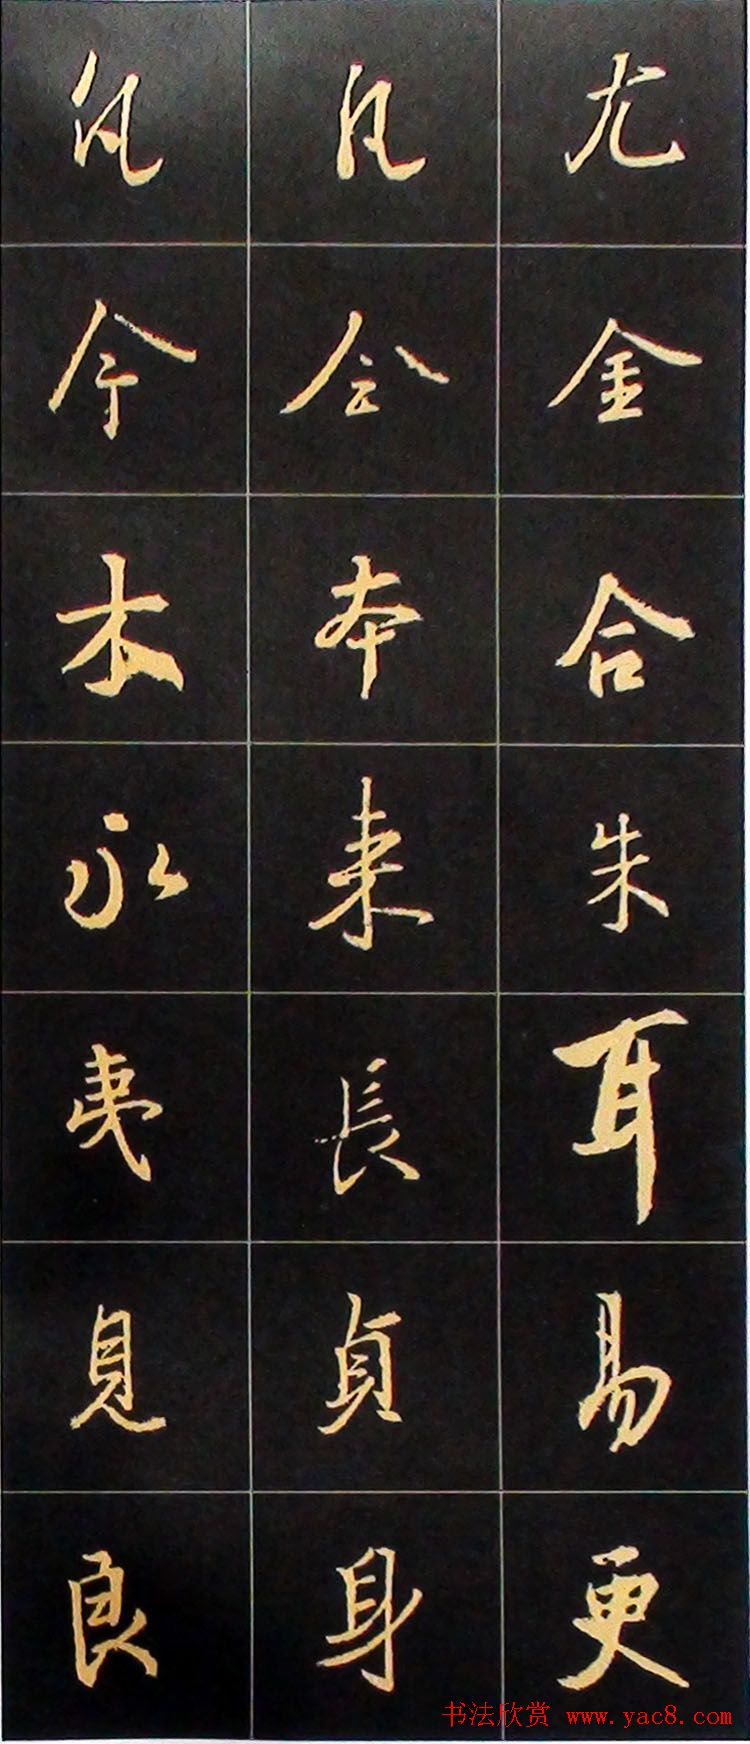 凡 凡 尤
今 会 金
木 本 合
永 来 朱
夷 長 耳
見 貞 易
良 身 更
书法欣赏 www.yac8.com